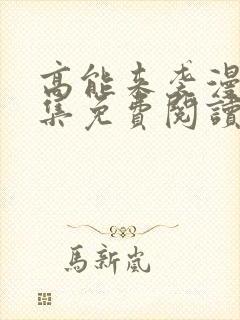 高能来袭漫
集免費閱讀
馬新嵐